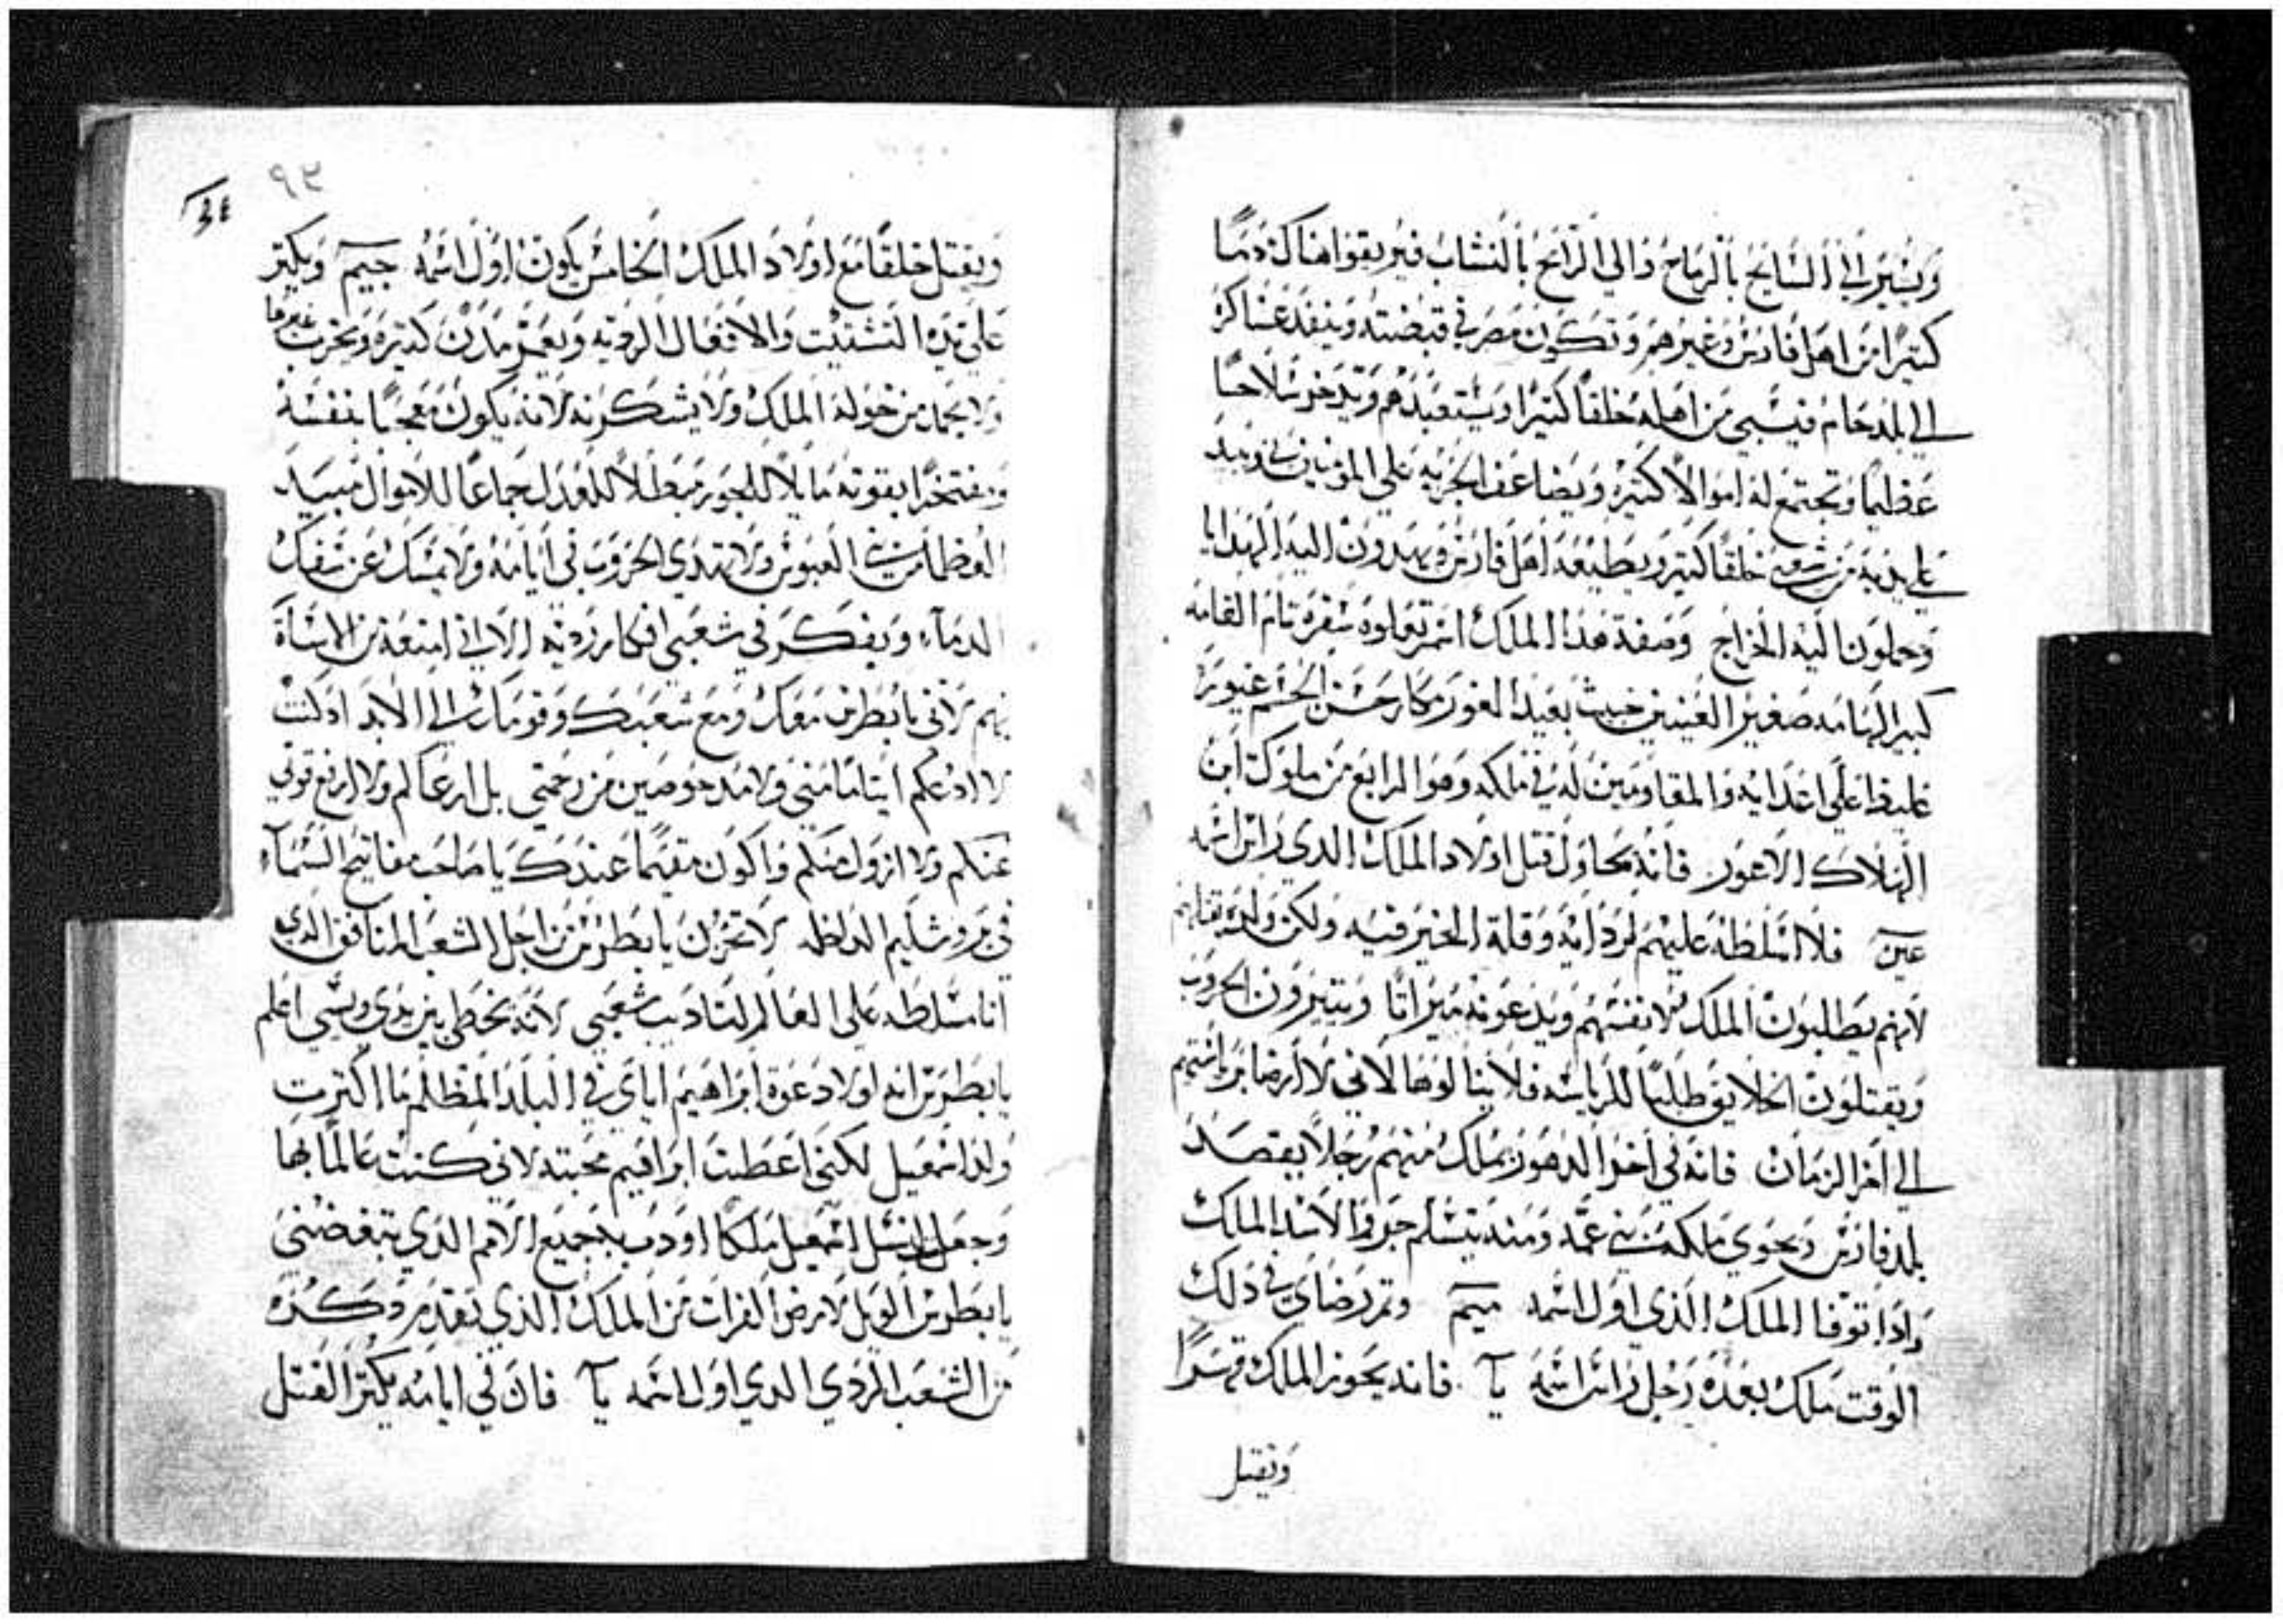 ويشير الي السايح بالرماح والي الرامح بالنشاب فيريقوا هناك دما
كثيرا من اهل فارس وغيرهم وتكون مصر في قبضته وينفد عساكر
الي بلد حام فيسبي من اهله خلقا كثيرا ويستعبدهم ويدخر سلاحا
عظيما وتجتمع له اموالا كثيره ويضاعف الجزيه علي المومنين بي ويبيد
علي يديه من شعبي خلقا كثير ويطيعه اهل فارس ويهدون اليه الهدايا
وحملون اليه الخراج وصفة هذا الملك اسمر تعلوه شقره تام القامه
كبير الهامه صغير العينين خبيث بعيد الغور مكار حسن الجسم غيور
غليظ علي اعدايه والمقاومين له في ملكه وهو الرابع من ملوك ابن
الهلاك الاعور فانه يحاول قتل اولاد الملك الدي راس اسمه
عين فلا اسلطه عليهم لرداته وقلة الخير فيه ولكن
لانهم يطلبون الملك لانفسهم ويدعونه ميراثا ويثيرون الحروب
ويقتلون الخلايق طلبا للرياسه فلا ينالوها لاني لا ارضا برياستهم
الي اخر الزمان فانه في اخر الدهور يملك منهم رجلا يقصد
بلد فارس ويحوي ملكه بني عمه ومنه يتسلم جروا الاسد الملك
واذا توفا الملك الذي اول اسمه ميم وتم رضاي في ذلك
الوقت ملك بعده رجل راس اسمه يآ فانه يحوز الملك قهرا
ويقتل
٩٣
ويقتل خلقا مع اولاد الملك الخامس يكون اول اسمه جيم ويكثر
علي يده التشتيت والافعال الرديه ويعمر مدن كثيره ويخرب غيرها
ولا يحمل من خوله الملك ولا يشكرنه لانه يكون معجبا بنفسه
ومفتخرا بقوته مايلا للجور مبطلا للعدل جماعا للاموال مبيد
العظما العبوس ولا تهدي الحروب في ايامه ولا يمسك عن سفك
الدماء ويفكر في شعبي افكار رديه الا اني امنعه من الاساة
بهم لاني يا بطرس معك ومع شعبك وقومك الي الابد اد كنت
لا ادعكم ايتاما مني ولا مدحوضين من رحمتي بل ارعاكم ولا ارفع قوتي
عنكم ولا ازول عنكم واكون مقيما عندك يا صاحب مفاتيح السماء
في يروشليم لا تحزن يا بطرس من اجل الشعب المنافق الدي
انا مسلطه علي العالم لتاديب شعبي لانه يخطي بين يدي وينسي اعلم
يا بطرس انه اولا دعوة ابراهيم اياي في البلد المظلم ما اكثرت
ولد اسمعيل لكنني اعطيت ابراهيم محبته لاني كنت عالما بها
وجعل لنسل اسمعيل ملكا اودب به جميع الامم الدي تبغضني
يا بطرس الويل لارض الفرات من الملك الذي تقدم دكره
من الشعب الردي الدي اول اسمه يآ فان في ايامه يكثر القتل